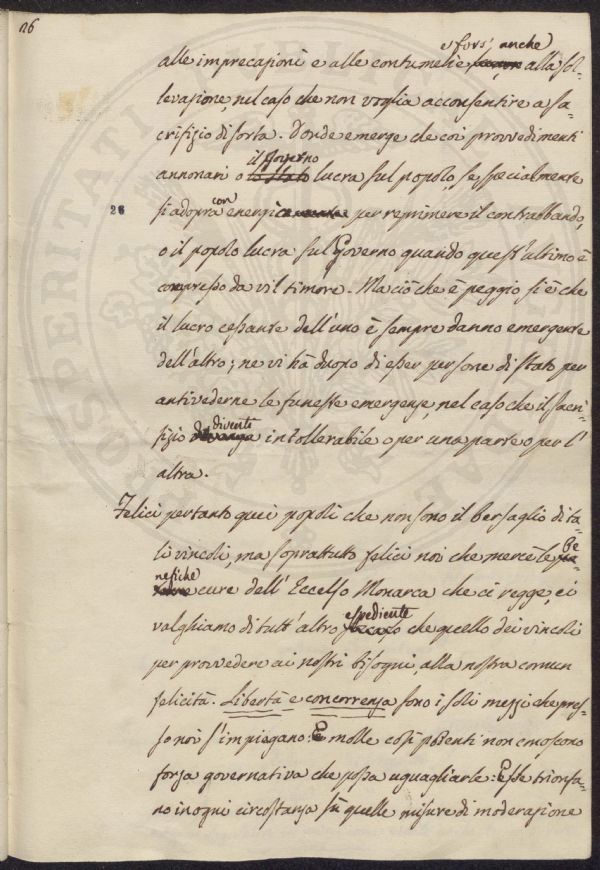 26
e fors' anche
alle imprecazioni e alle contumelie alla sol-
levazione, nel caso che non voglia acconsentire a sa-
crifizio di sorta. Donde emerge che coi provvedimenti
il Governo
annonari o lo Stato lucra sul popolo, se specialmente
con
28 si adopra energi per reprimere il contrabbando,
o il popolo lucra sul Governo quando quest'ultimo è
compreso da vil timore. Ma ciò che è peggio si è che
il lucro cessante dell'uno è sempre danno emergente
dell'altro; ne vi ha duopo di esser persone di stato per
antivederne le funeste emergenze, nel caso che il sacri-
divente
fizio divenga intollerabile o per una parte o per l'
altra.
Felici pertanto quei popoli che non sono il bersaglio di ta-
li vincoli, ma soprattutto felici noi che mercè le be
nefiche
cure dell'Eccelso Monarca che ci regge, ci
espediente
valghiamo di tutt'altro che quello dei vincoli
per provvedere ai nostri bisogni, alla nostra comun
felicità. Libertà e concorrenza sono i soli mezzi che pres-
so noi s'impiegano: E molle così potenti non conoscono
forza governativa che possa uguagliarle: Esse trionfa-
no in ogni circostanza su quelle misure di moderazione